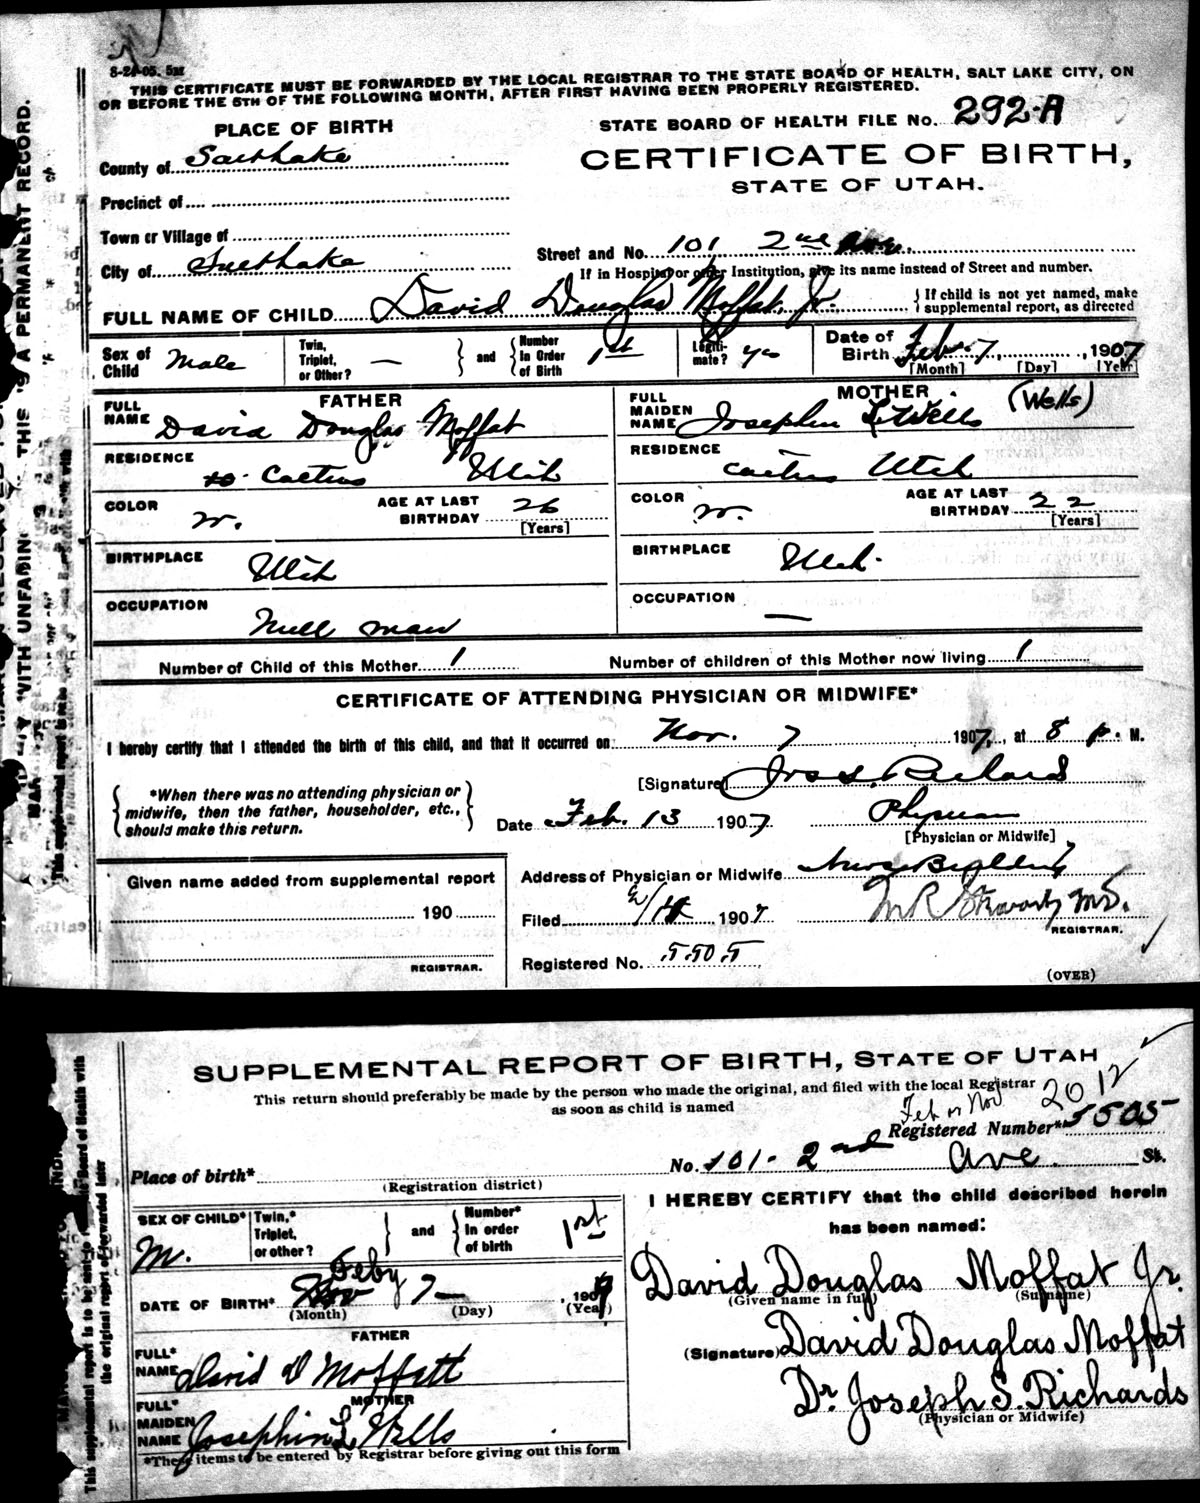 8-24-05. 5M
THIS CERTIFICATE MUST BE FORWARDED BY THE LOCAL REGISTRAR TO THE STATE BOARD OF HEALTH, SALT LAKE CITY, ON
OR BEFORE THE 5TH OF THE FOLLOWING MONTH, AFTER FIRST HAVING BEEN PROPERLY REGISTERED.
PLACE OF BIRTH
STATE BOARD OF HEALTH FILE No. 292-A
County of Salt Lake
CERTIFICATE OF BIRTH,
STATE OF UTAH.
Precinct of
Town or Village of
City of Salt Lake
Street and No. 101 2nd Ave.
If in Hospital or other Institution, give its name instead of Street and number.
FULL NAME OF CHILD David Douglas Moffat, Jr.
{ If child is not yet named, make
supplemental report, as directed
Sex of Child Male
Twin, Triplet, or Other? —
and
Number in Order of Birth 1st
Legitimate? yes
Date of Birth Feb. 7, 1907
[Month] [Day] [Year]
FATHER
FULL NAME David Douglas Moffat
RESIDENCE Utah
COLOR W.
AGE AT LAST BIRTHDAY 26
[Years]
BIRTHPLACE Utah
OCCUPATION Mill man
MOTHER
FULL MAIDEN NAME Josephin L Wells (Wells)
RESIDENCE Utah
COLOR W.
AGE AT LAST BIRTHDAY 22
[Years]
BIRTHPLACE Utah.
OCCUPATION —
Number of Child of this Mother 1
Number of children of this Mother now living 1
CERTIFICATE OF ATTENDING PHYSICIAN OR MIDWIFE*
I hereby certify that I attended the birth of this child, and that it occurred on Nov. 7 1907, at 8 p. M.
*When there was no attending physician or
midwife, then the father, householder, etc.,
should make this return.
[Signature] Jos S. Richards
Date Feb. 13 1907
Physician
[Physician or Midwife]
Given name added from supplemental report
190
REGISTRAR.
Address of Physician or Midwife News Building
Filed 1907
M R Stewart, M.D.
REGISTRAR.
Registered No. 5505
(OVER)
SUPPLEMENTAL REPORT OF BIRTH, STATE OF UTAH
This return should preferably be made by the person who made the original, and filed with the local Registrar
as soon as child is named
2012
Feb or Nov
Registered Number* 5505
Place of birth*
(Registration district)
No. 101- 2nd Ave. St.
SEX OF CHILD* M.
Twin,* Triplet, or other?
and
Number* in order of birth 1st
Feby
DATE OF BIRTH* Nov 7 — 1907
(Month) (Day) (Year)
FATHER
FULL* NAME David D Moffatt
MOTHER
FULL* MAIDEN NAME Josephin L Wells
*These items to be entered by Registrar before giving out this form
I HEREBY CERTIFY that the child described herein
has been named:
David Douglas Moffat Jr.
(Given name in full) (Surname)
(Signature) David Douglas Moffat
Dr. Joseph S. Richards
(Physician or Midwife)
WITH UNFADING
THIS IS A PERMANENT RECORD.
This supplemental report is to be
Board of Health with
the original report
forwarded later